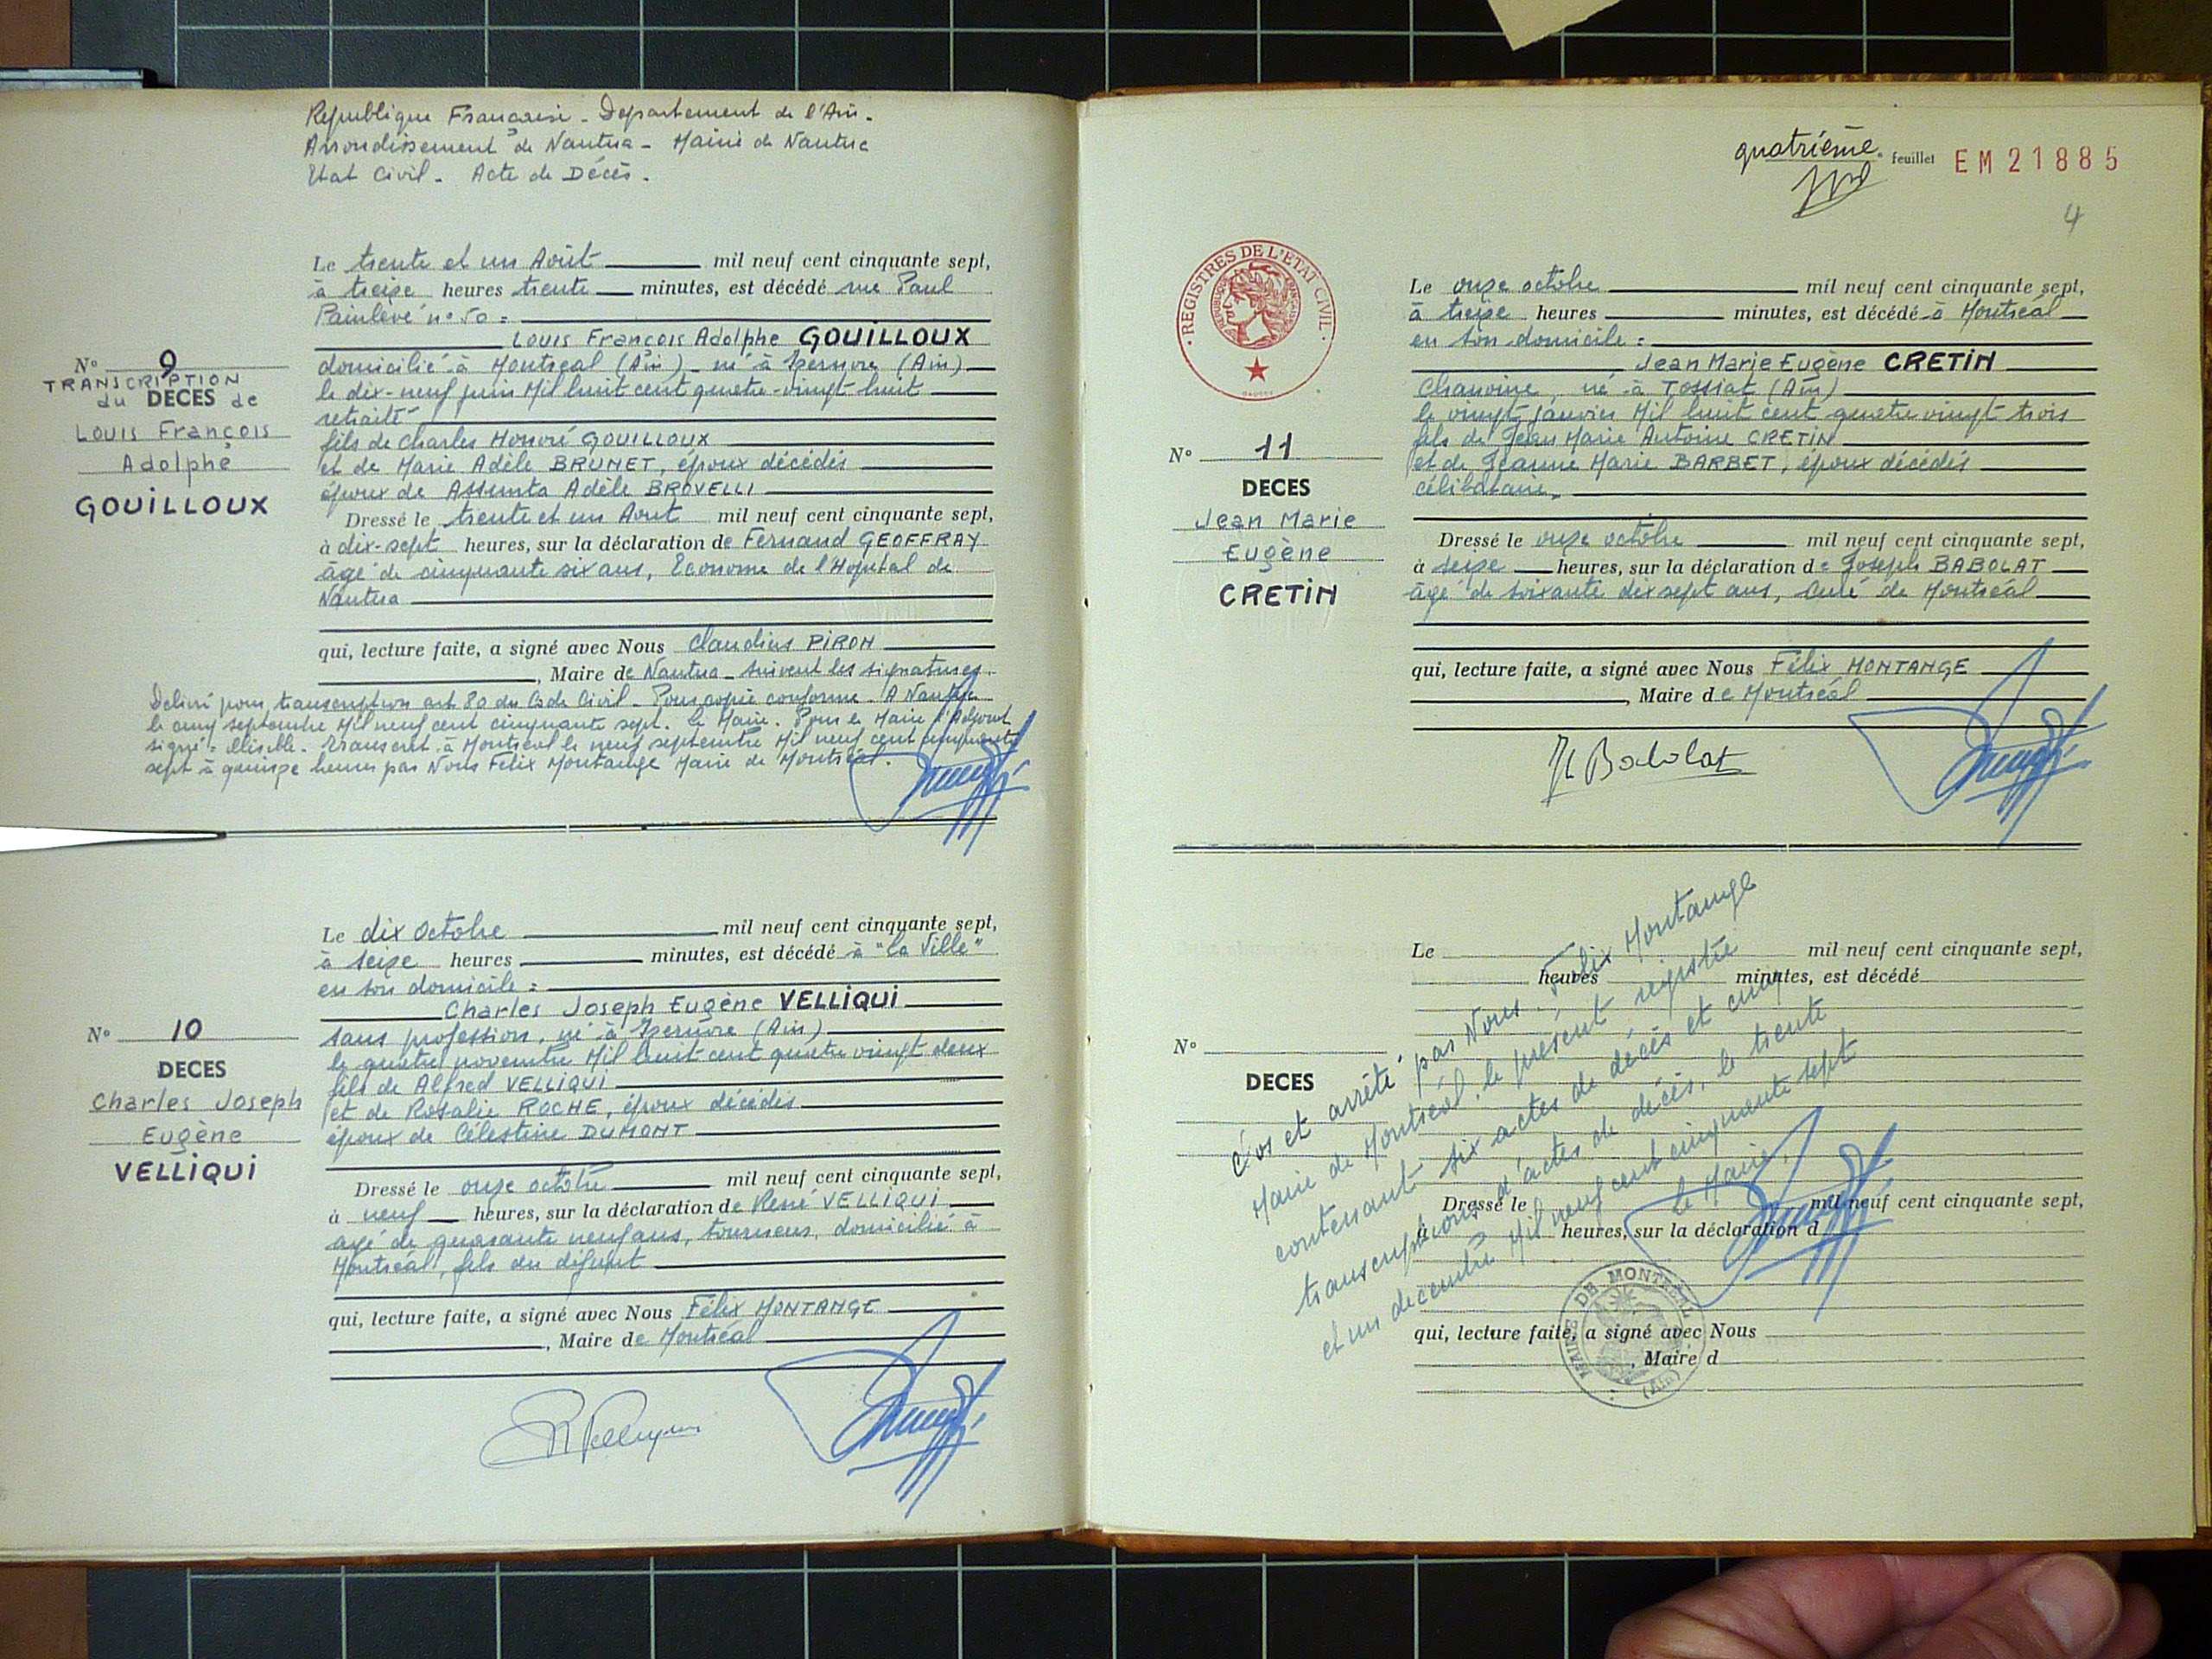 Republique Francaise - Departement de l'Ain.
Arrondissement de Nantua - Mairie de Nantua
Etat Civil - Acte de Décès.
Le trente et un Août mil neuf cent cinquante sept,
à treize heures trente minutes, est décédé rue Paul
Painlevé n° 50 =
Louis François Adolphe GOUILLOUX
domicilié à Montreal (Ain) né à Izernore (Ain)
le dix-neuf juin Mil huit cent quatre-vingt huit
retraité
fils de Charles Honoré GOUILLOUX
et de Marie Adèle BRUNET, époux décédés
époux de Assunta Adèle BROVELLI
Dressé le trente et un Aout mil neuf cent cinquante sept,
à dix-sept heures, sur la déclaration de Fernand GEOFFRAY
âgé de cinquante six ans, Econome de l'Hopital de
Nantua
qui, lecture faite, a signé avec Nous Claudius PIRON
, Maire de Nantua - suivent les signatures.
Délivré pour transcription art 80 du Code Civil - Pour copie conforme - A Nantua
le cinq septembre Mil neuf cent cinquante sept. Le Maire. Pour le Maire l'Adjoint
signé = illisible. Transcrit à Montreal le neuf septembre Mil neuf cent cinquante
sept à quinze heures par Nous Felix Montange Maire de Montréal.
N° 9
TRANSCRIPTION
du DECES de
Louis François
Adolphe
GOUILLOUX
Le dix Octobre mil neuf cent cinquante sept,
à seize heures minutes, est décédé à "La Ville"
en son domicile =
Charles Joseph Eugène VELLIQUI
sans profession, né à Izernore (Ain)
le quatre novembre Mil huit cent quatre vingt deux
fils de Alfred VELLIQUI
et de Rosalie ROCHE, époux décédés
époux de Célestine DUMONT
Dressé le onze octobre mil neuf cent cinquante sept,
à neuf heures, sur la déclaration de René VELLIQUI
agé de quarante neuf ans, tourneur, domicilié à
Montréal, fils du défunt
qui, lecture faite, a signé avec Nous Félix MONTANGE
, Maire de Montréal
N° 10
DECES
Charles Joseph
Eugène
VELLIQUI
quatrième feuillet EM 21885
4
REGISTRES DE L'ETAT CIVIL
REPUBLIQUE FRANÇAISE
Le onze octobre mil neuf cent cinquante sept,
à treize heures minutes, est décédé à Montréal
en son domicile =
Jean Marie Eugène CRETIN
Chanoine, né à Tossiat (Ain)
le vingt janvier Mil huit cent quatre vingt trois
fils de Jean Marie Antoine CRETIN
et de Jeanne Marie BARBET, époux décédés
célibataire
Dressé le onze octobre mil neuf cent cinquante sept,
à seize heures, sur la déclaration de Joseph BABOLAT
âgé de soixante dix sept ans, Curé de Montréal
qui, lecture faite, a signé avec Nous Félix MONTANGE
, Maire de Montréal
Babolat
N° 11
DECES
Jean Marie
Eugène
CRETIN
Le mil neuf cent cinquante sept,
heures minutes, est décédé
N°
DECES
Clos et arrêté par Nous Félix Montange
Maire de Montréal, le présent registre
contenant six actes de décès et cinq
transcriptions d'actes de décès, le trente
et un decembre Mil neuf cent cinquante sept
Le Maire,
Dressé le mil neuf cent cinquante sept,
à heures, sur la déclaration d
qui, lecture faite, a signé avec Nous
, Maire d
MAIRIE DE MONTREAL
(Ain)